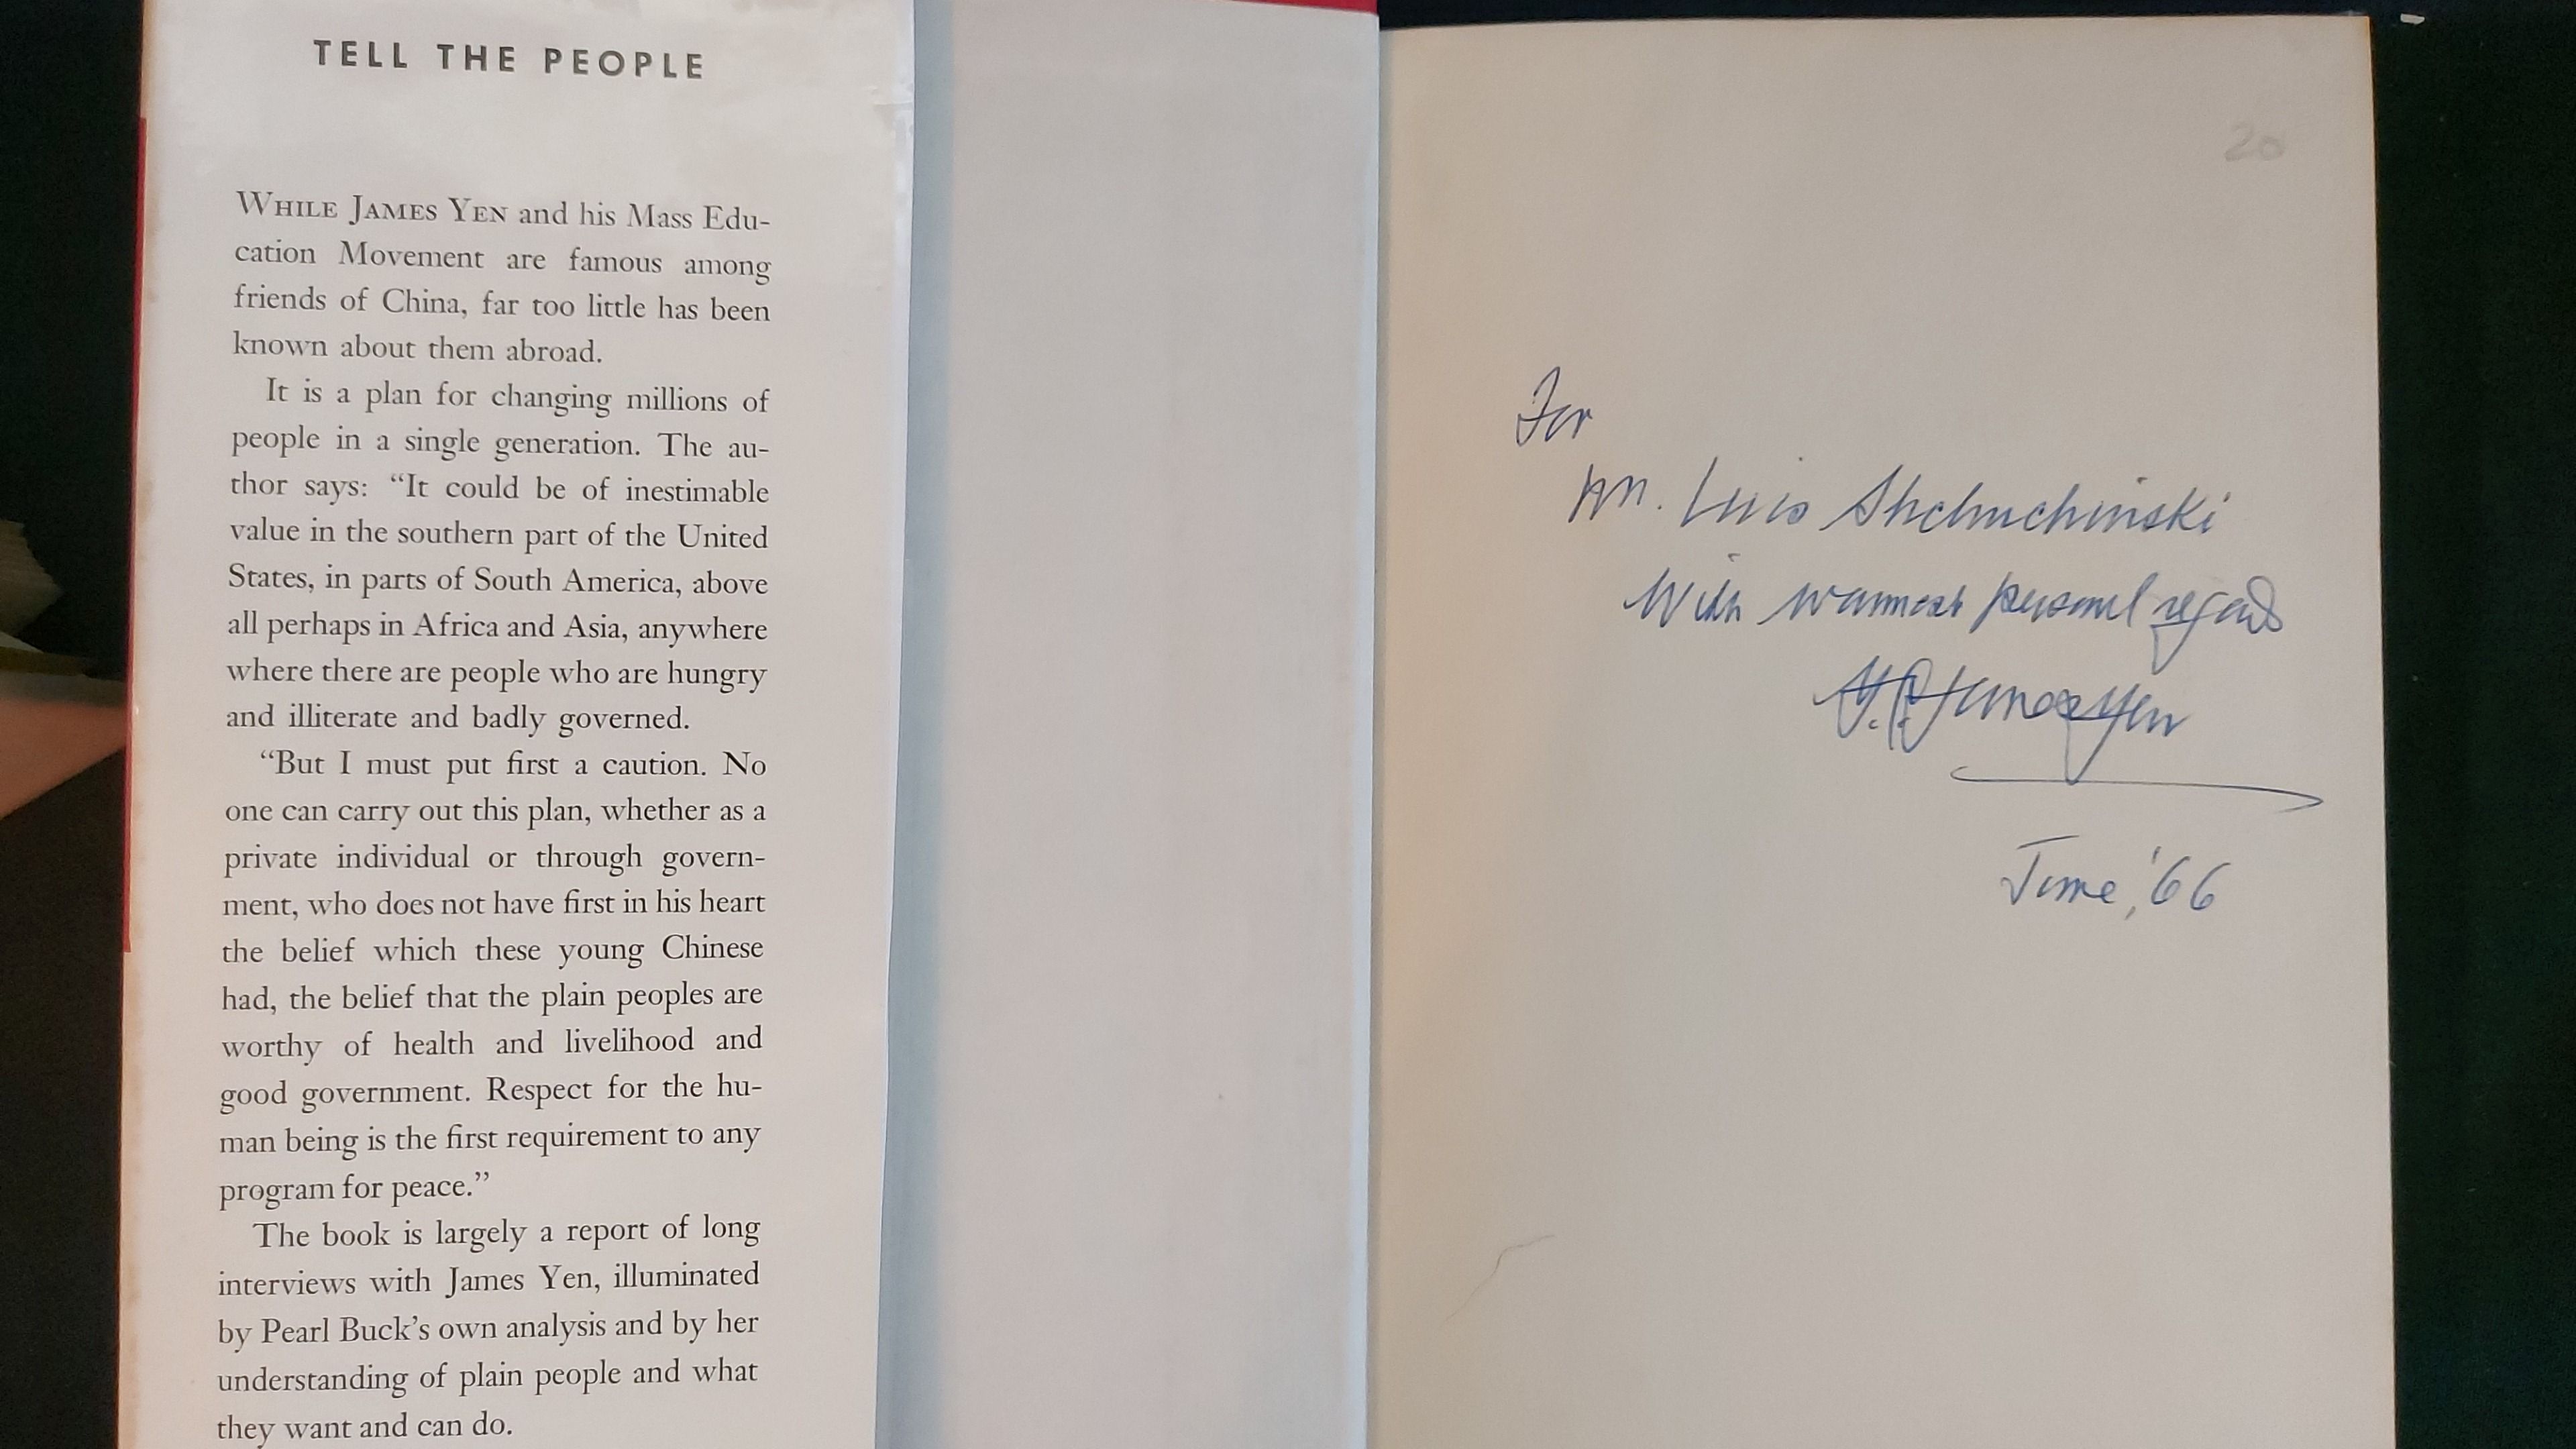 TELL THE PEOPLE
WHILE JAMES YEN and his Mass Edu-
cation Movement are famous among
friends of China, far too little has been
known about them abroad.
It is a plan for changing millions of
people in a single generation. The au-
thor says: “It could be of inestimable
value in the southern part of the United
States, in parts of South America, above
all perhaps in Africa and Asia, anywhere
where there are people who are hungry
and illiterate and badly governed.
“But I must put first a caution. No
one can carry out this plan, whether as a
private individual or through govern-
ment, who does not have first in his heart
the belief which these young Chinese
had, the belief that the plain peoples are
worthy of health and livelihood and
good government. Respect for the hu-
man being is the first requirement to any
program for peace.”
The book is largely a report of long
interviews with James Yen, illuminated
by Pearl Buck’s own analysis and by her
understanding of plain people and what
they want and can do.
20
For
Mr. Luis Shchuchinski
With warmest personal regards
Y.C. James Yen
June, '66